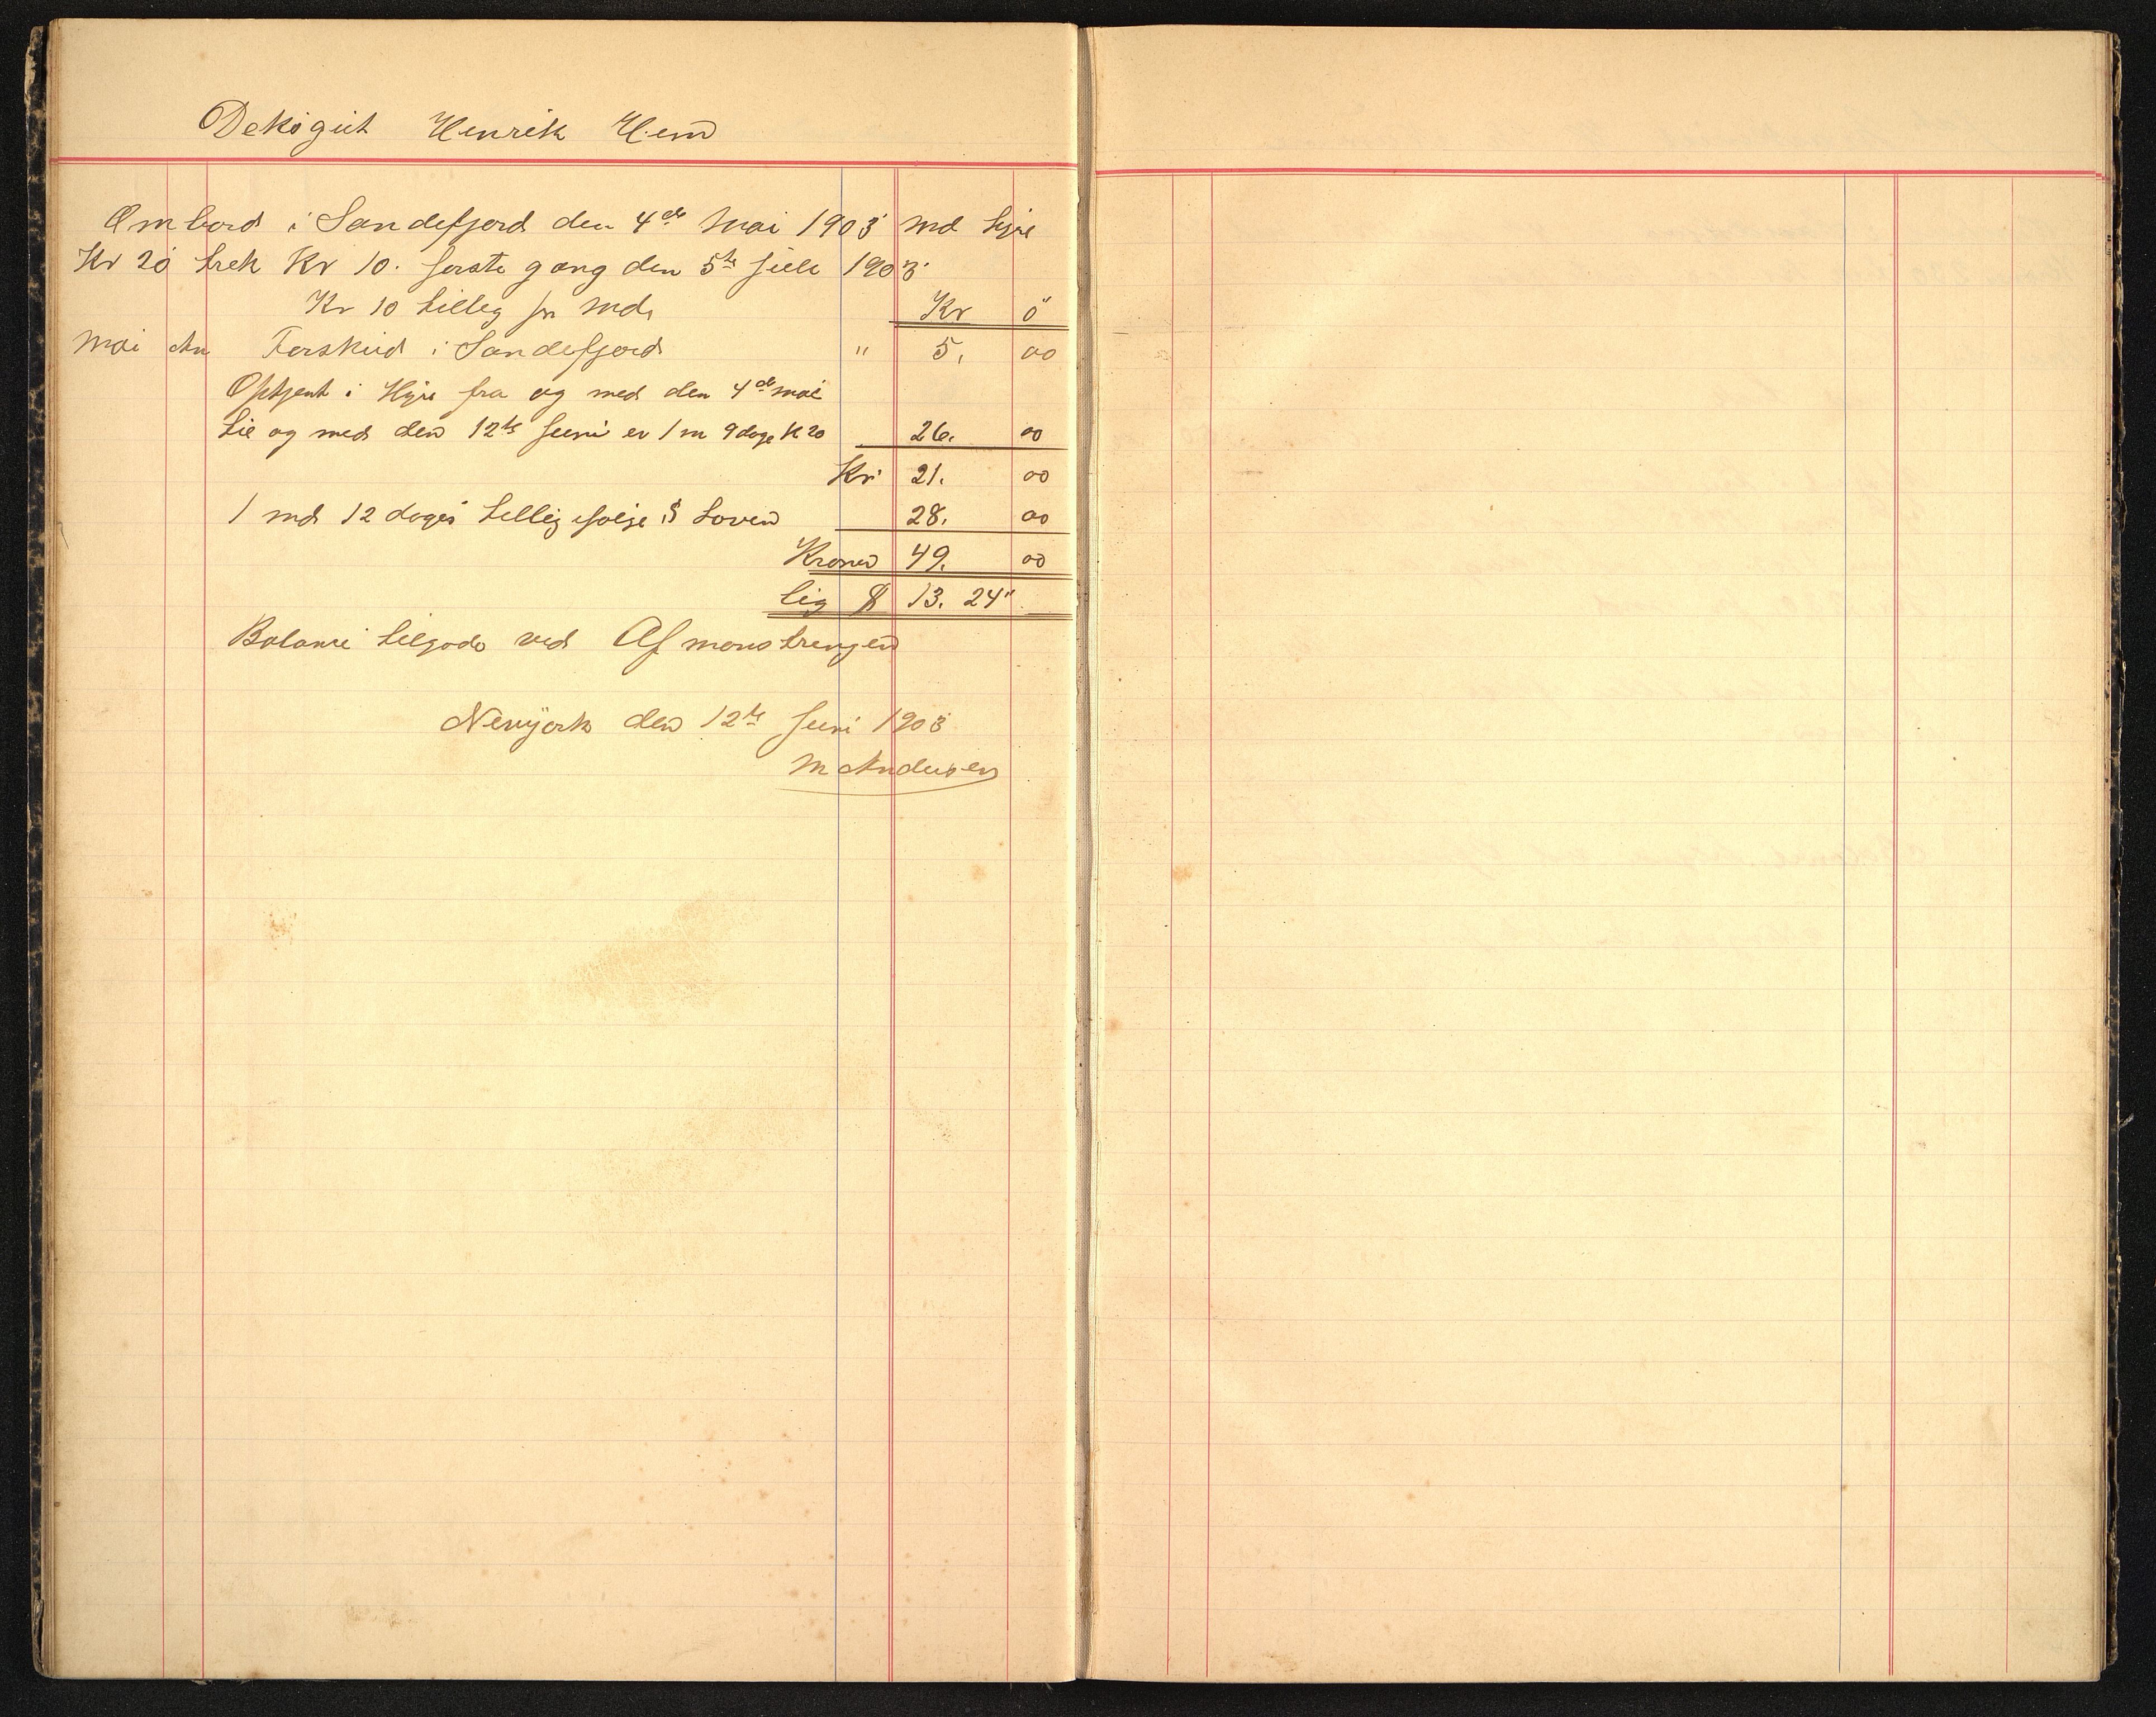 Deksgut Henrik Hem
Ombord i Sandefjord den 4de Mai 1903 md Hyre
Kr 20 trek Kr 10. første gang den 5te Juli 1903
Kr 10 Tilleg pr md. Kr ö
Mai An Forskud i Sandefjord " 5. 00
Optjent i Hyre fra og med den 4de mai
til og med den 12te Juni er 1 m 9 dage K 20 26. 00
Kr 21. 00
1 md 12 dages Tilleg ifølge § Loven 28. 00
Kroner 49. 00
Lig $ 13. 24"
Balance tilgode ved Afmønstringen
Newyork den 12te Juni 1903
M Andersen